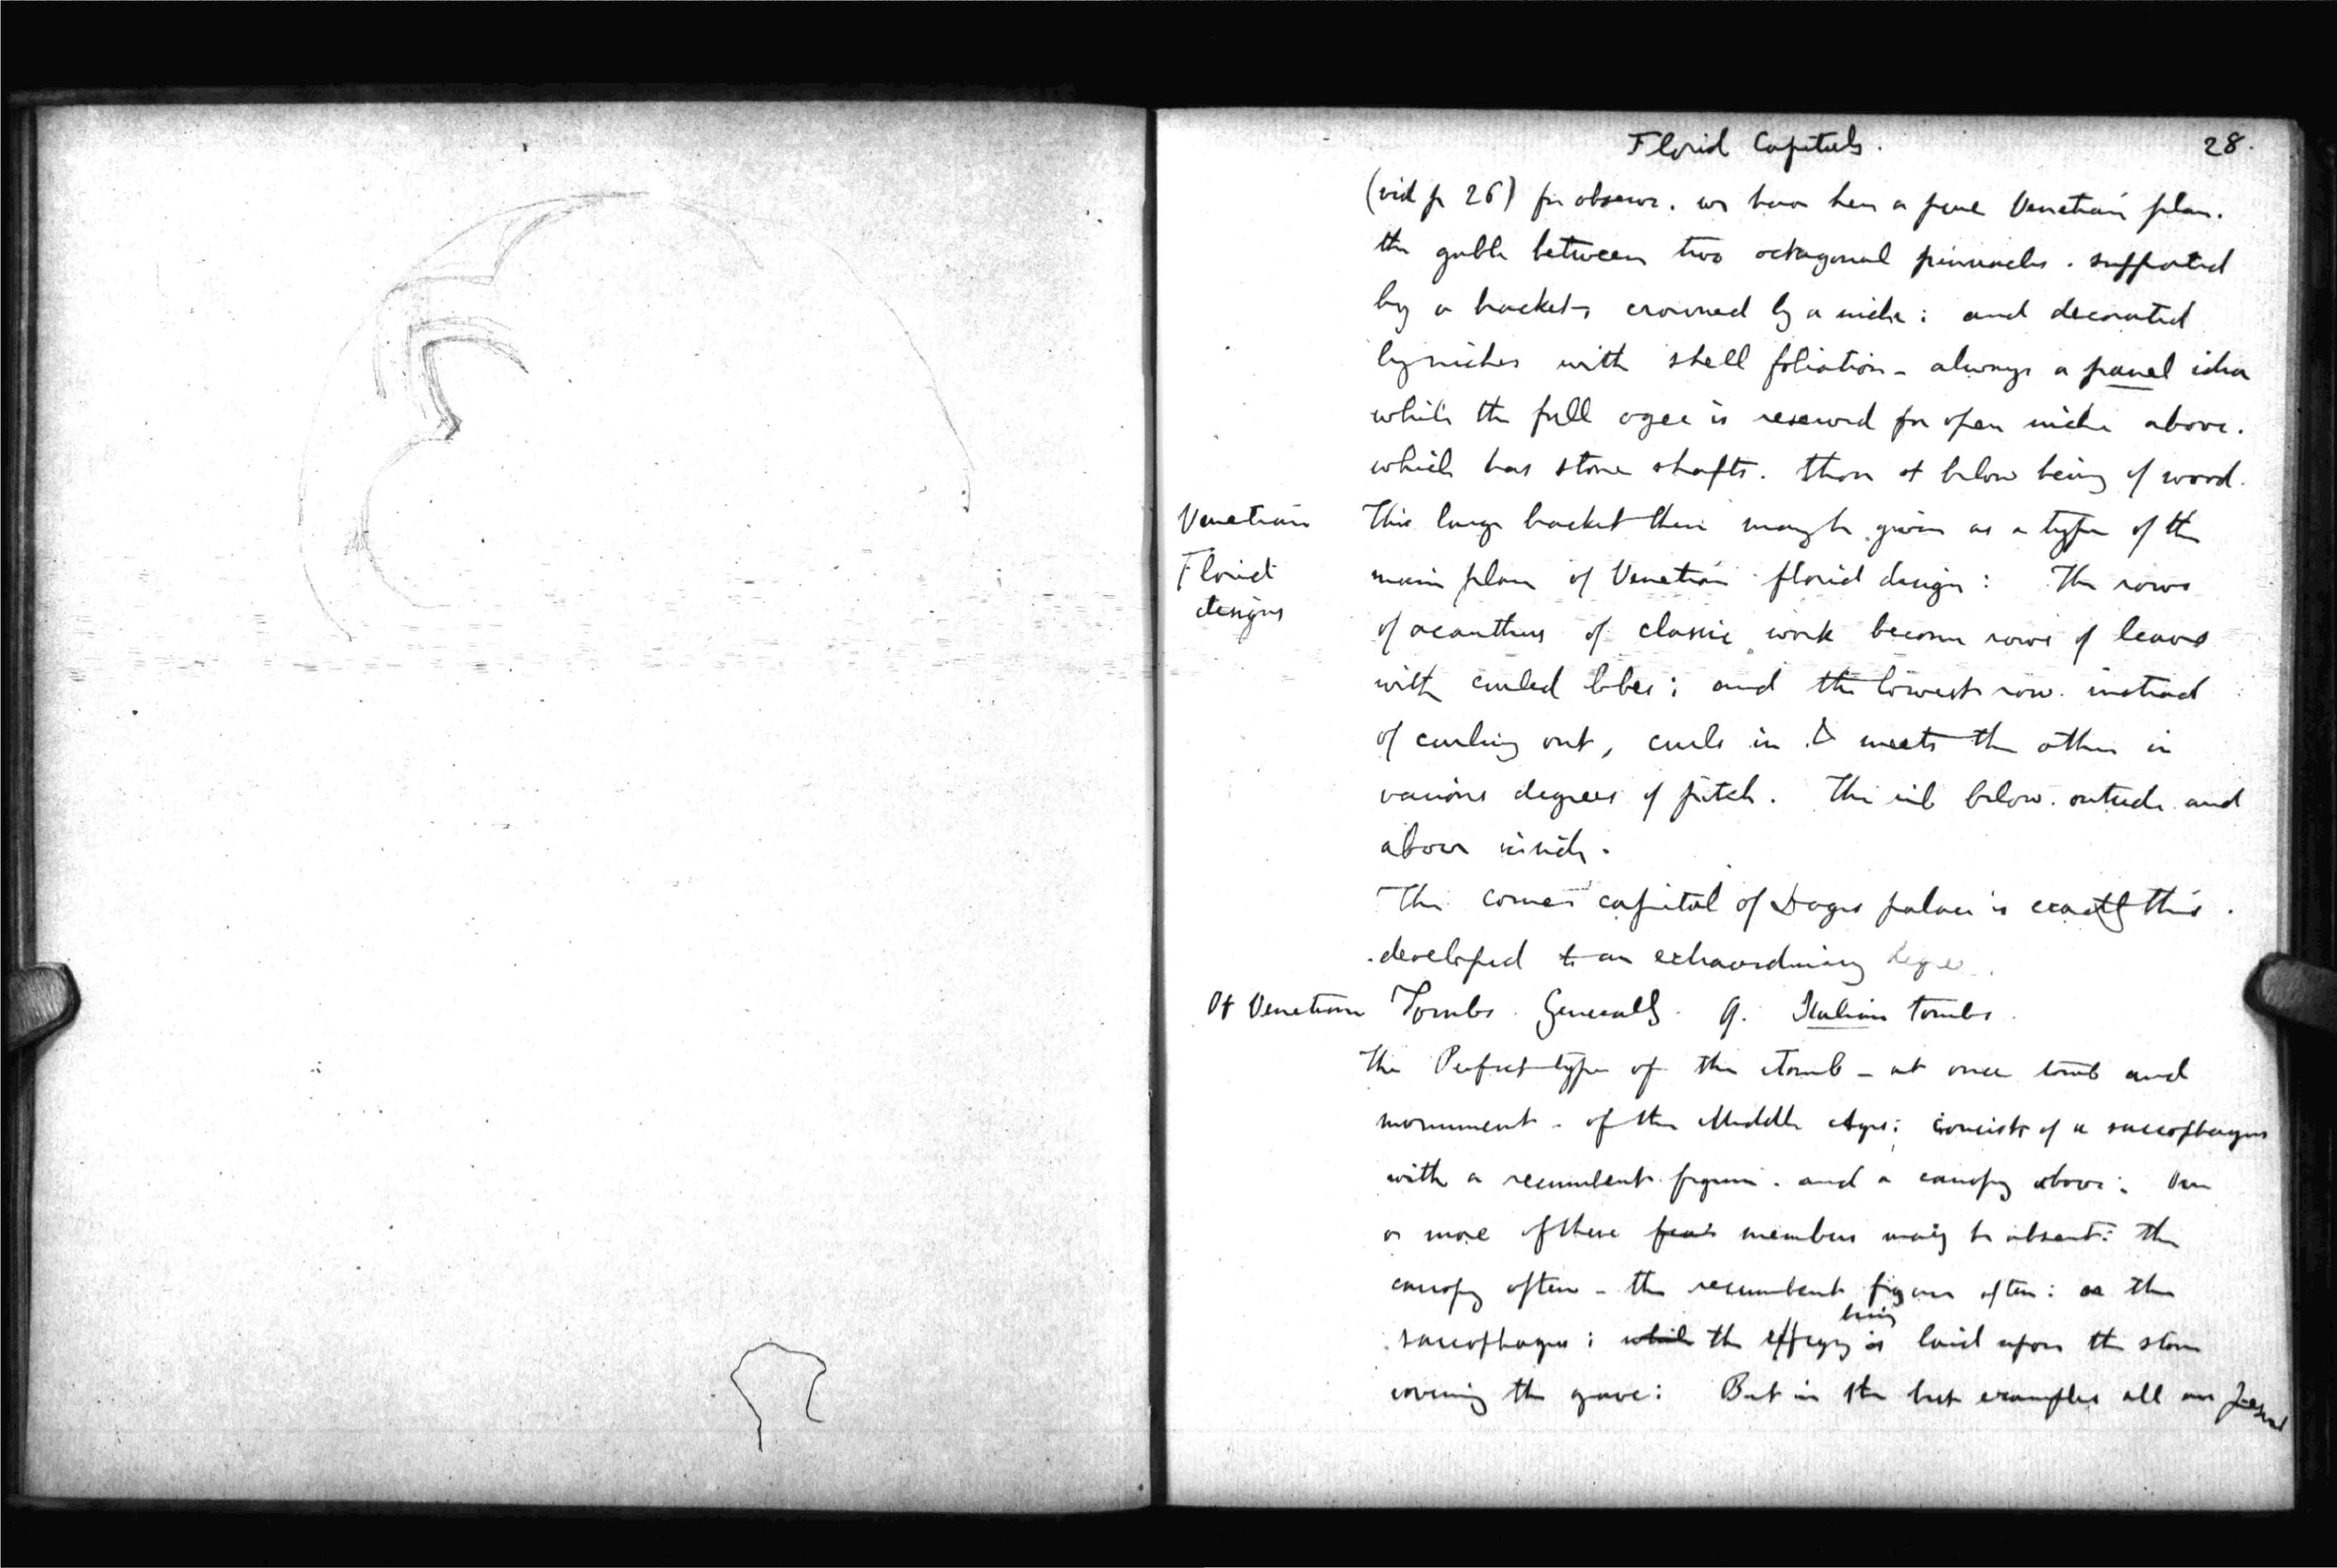 Florid Capitals. 28.
(vid p 26) for observe. we have here a pure Venetian plan.
the gable between two octagonal pinnacles. supported
by a bracket, crowned by a niche: and decorated
by niches with shell foliation - always a panel idea
while the full ogee is reserved for open niche above.
which has stone shafts. those of below being of wood.
Venetian
Florid
designs
This large bracket then may be given as a type of the
main plan of Venetian florid design: The rows
of acanthus of classic work become rows of leaves
with curled lobes; and the lowest row. instead
of curling out, curls in & meets the other in
various degrees of pitch. The rib below. outside and
above inside.
The corner capital of Doges palace is exactly this.
developed to an extraordinary degree.
Of Venetian Tombs. Generally. Italian tombs.
The Perfect type of the tomb - at once tomb and
monument - of the Middle Ages; consists of a sarcophagus
with a recumbent figure. and a canopy above: One
or more of these members may be absent: the
canopy often - the recumbent figure often: or the
sarcophagus: while the effigy is being laid upon the stone
covering the grave: But in the best examples all are present